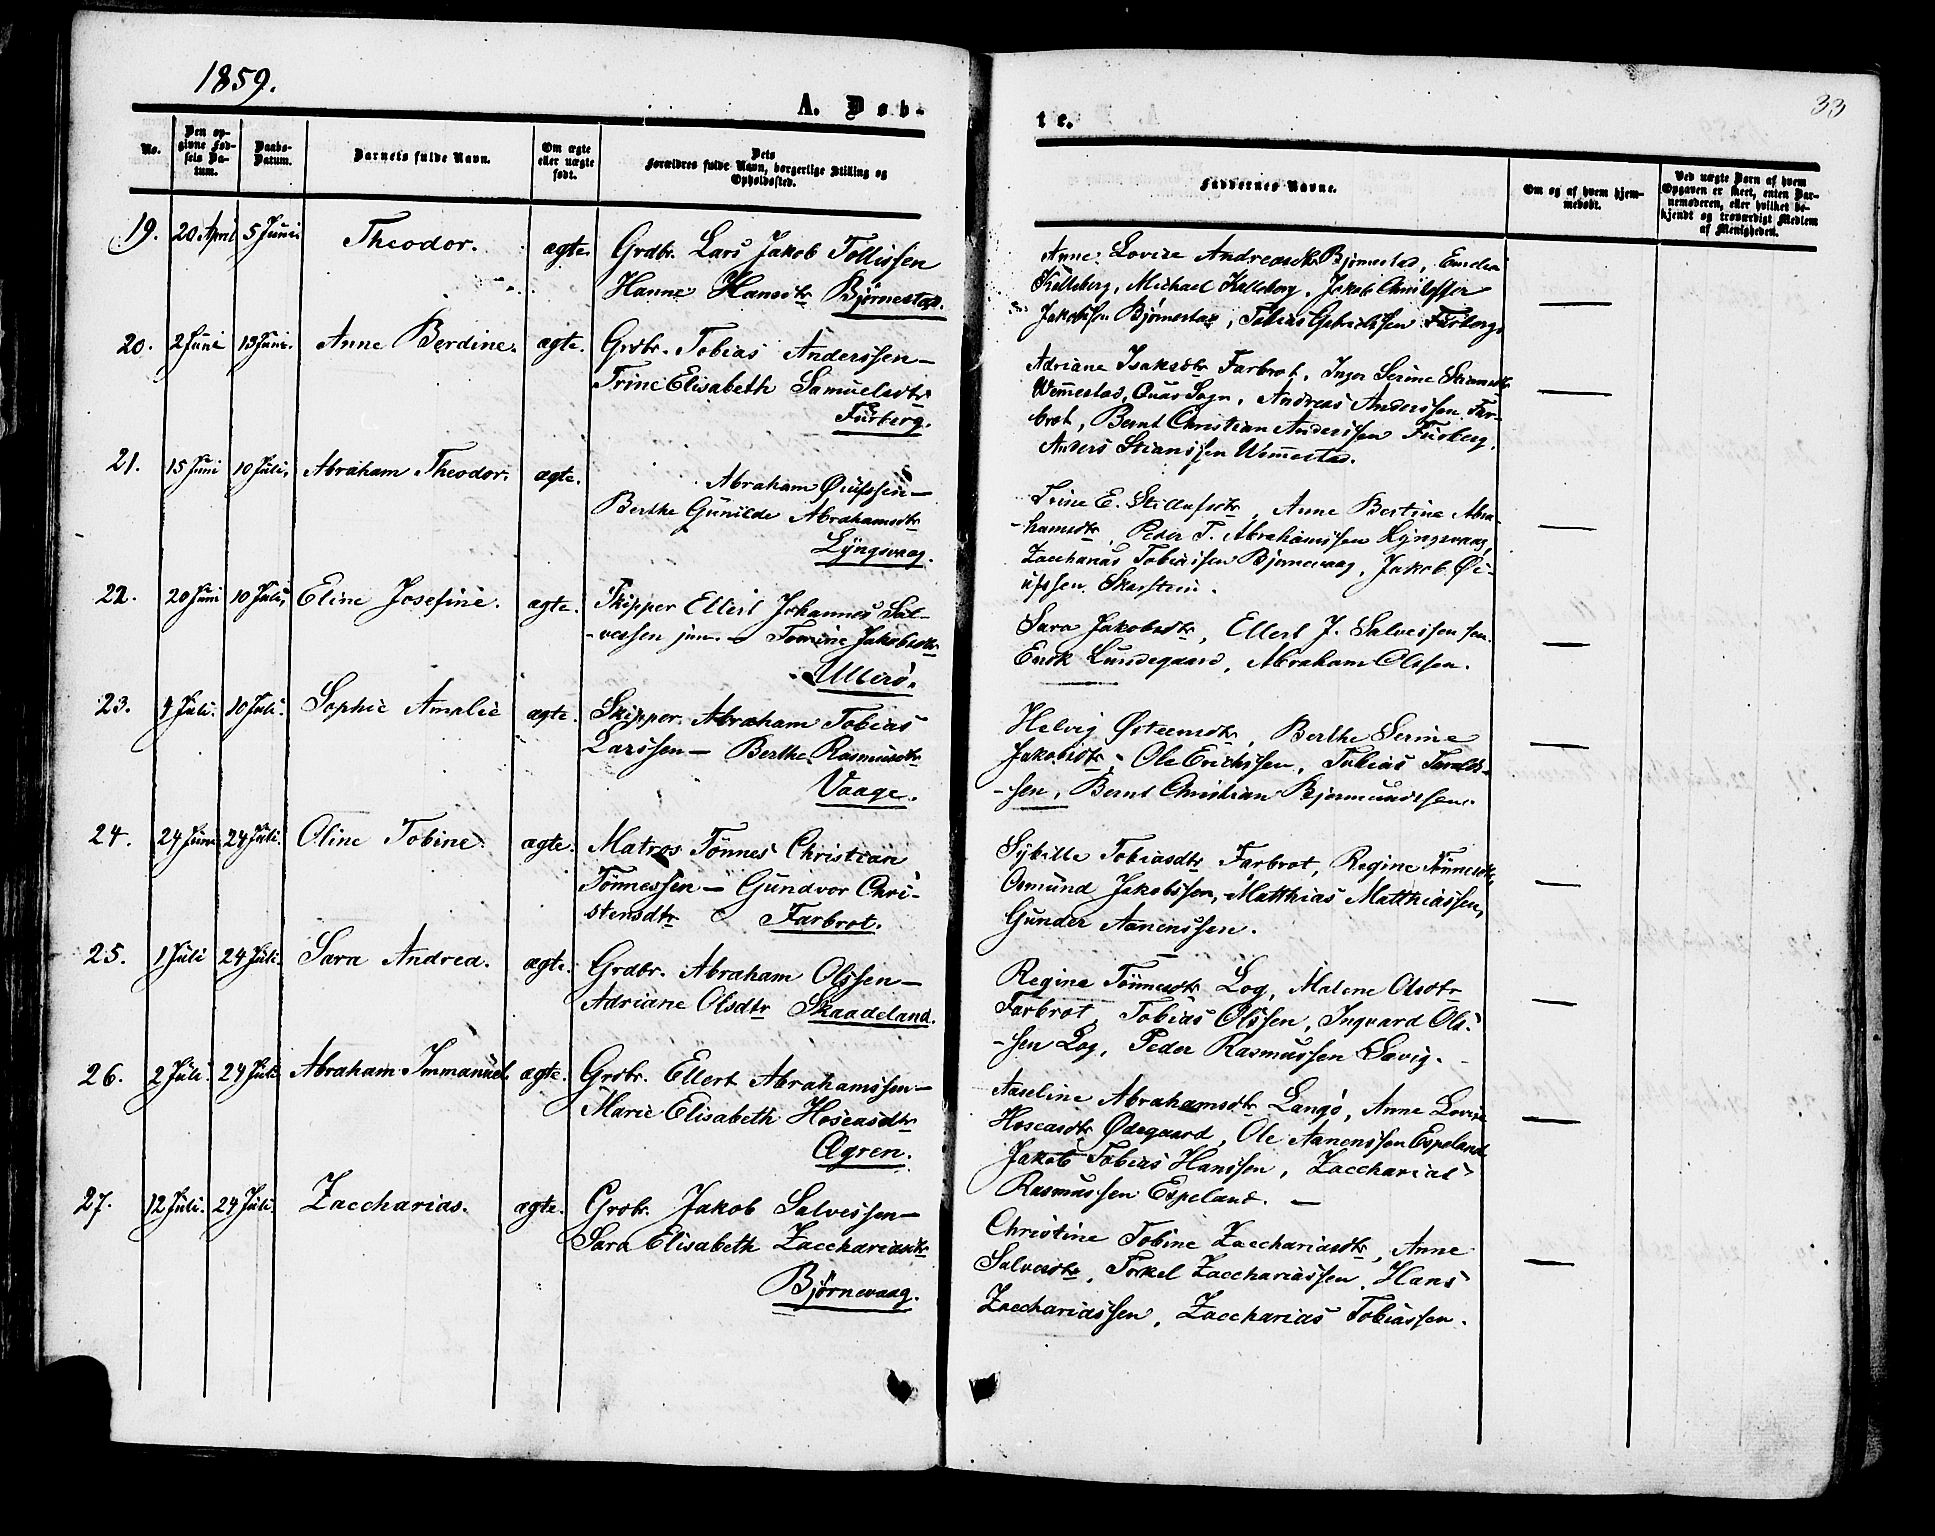 1859.
A. Døb-
te.
33
No.
Den op-
givne Fød-
sels Da-
tum.
Daabs-
Datum.
Barnets fulde Navn.
Om ægte
eller uægte
født.
Dets
Forældres fulde Navn, borgerlige Stilling og
Opholdssted.
Faddernes Navne.
Om og af hvem hjem-
medøbt.
Ved uægte Børn af hvem
Opgaven er skeet, enten Bar-
nemoderen, eller hvilket be-
kjendt og troværdigt Medlem
af Menigheden.
19. 20 April 5 Juni Theodor. ægte. Grdbr. Lars Jakob Tollissen
Hanne Hansdtr Bjørnestad.
Anne Lovise Andreasdtr Bjørnestad,
Kelleberg, Michael Kelleberg, Jakob Christoffer
Jakobssen Bjørnestad, Tobias Gabrielssen Furberg.
20. 2 Juni 13 Juni. Anne Berdine. ægte. Grdbr. Tobias Anderssen—
Trine Elisabeth Samuelsdtr
Furberg.
Adriane Isaksdtr Farbrot, Inger Serine Stiansdtr
Wemmestad, Qvås Sogn, Andreas Anderssen Far-
brot, Bernt Christian Anderssen Furberg,
Anders Stianssen Wemmestad.
21. 15 Juni 10 Juli. Abraham Theodor. ægte. Abraham Øiufssen—
Berthe Gunilde Abrahamsdtr
Lyngsvaag.
Trine E. Stillufsdtr, Anne Bertine Abra-
hamsdtr, Peder T. Abrahamssen Lyngsvaag,
Zaccharias Tobiassen Bjørnevaag, Jakob Øi-
ufssen Skarstein.
22. 20 Juni 10 Juli. Eline Josefine. ægte. Skipper Ellert Johannes Sal-
vessen jun.— Tomine Jakobsdtr
Ullerø.
Sara Jakobsdtr, Ellert J. Salvessen sen.
Enok Lundegaard, Abraham Olssen.
23. 4 Juli. 10 Juli. Sophie Amalie ægte. Skipper. Abraham Tobias
Larssen— Berthe Rasmusdtr
Vaage.
Helvig Østensdtr, Berthe Serine
Jakobsdtr, Ole Erichssen, Tobias Tarald-
sen, Bernt Christian Bjormundssen.
24. 24 Juni 24 Juli. Oline Tobine. ægte. Matros Tönnes Christian
Tönnessen— Gundvor Chri-
stensdtr Farbrot.
Sybille Tobiasdtr Farbrot, Regine Tönnesdtr,
Osmund Jakobssen, Matthias Matthiassen,
Gunder Aanenssen.
25. 1 Juli 24 Juli. Sara Andrea. ægte. Grdbr. Abraham Olssen—
Adriane Olsdtr Skaadeland.
Regine Tönnesdtr Log, Malene Olsdtr
Farbrot, Tobias Olssen, Ingvard Ols-
sen Log, Peder Rasmussen Savig.
26. 2 Juli. 24 Juli Abraham Immanuel. ægte. Grdbr. Ellert Abrahamssen—
Marie Elisabeth Hoseasdtr
Ægren.
Aaseline Abrahamsdtr Langø, Anne Lovise
Hoseasdtr Ødegaard, Ole Aanenssen Espeland
Jakob Tobias Hanssen, Zaccharias
Rasmussen Espeland.
27. 12 Juli. 24 Juli. Zaccharias. ægte. Grdbr. Jakob Salvessen—
Sara Elisabeth Zacchariasdtr
Bjørnevaag.
Christine Tobine Zacchariasdtr, Anne
Salvesdtr, Torkel Zacchariassen, Hans
Zacchariassen, Zaccharias Tobiassen.